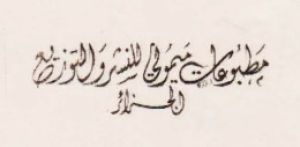 مطبوعات ميموني للنشر و التوزيع
الجزائر